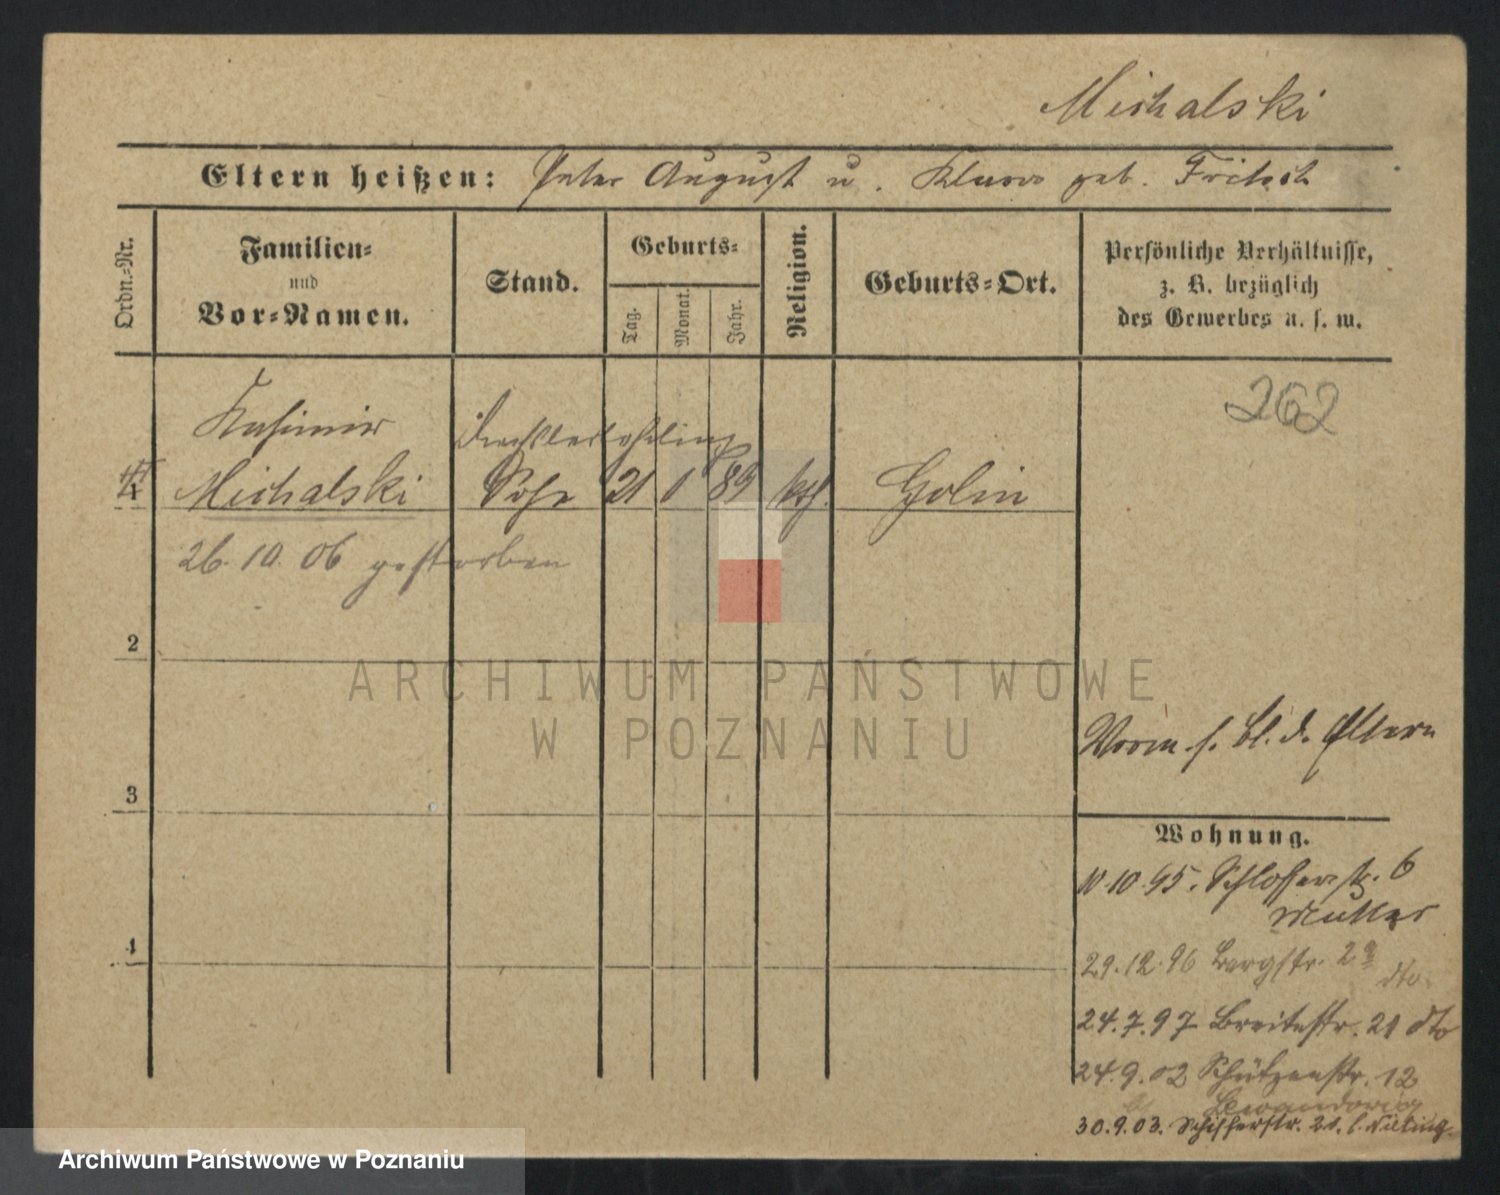 Michalski
Eltern heißen: Peter August u. Klara geb. Fritsch
Ordn.-Nr.
Familien-
und
Vor-Namen.
Stand.
Geburts-
Tag.
Monat.
Jahr.
Religion.
Geburts-Ort.
Persönliche Verhältnisse,
z. B. bezüglich
des Gewerbes u. s. w.
262
Kasimir
Michalski
Sohn 21 1 89 ktl. Golin
26.10.06 gestorben
2
3
4
ARCHIWUM PAŃSTWOWE
W POZNANIU
Vorm s. Bl. d. Eltern
Wohnung.
10.10.95. Schlosserstr. 6
Mutter
29.12.96 Bergstr. 2a
dto
24.7.97 Breitestr. 21 dto
24.9.02 Schützenstr. 12
30.9.03. Schifferstr. 21. b.
Archiwum Państwowe w Poznaniu